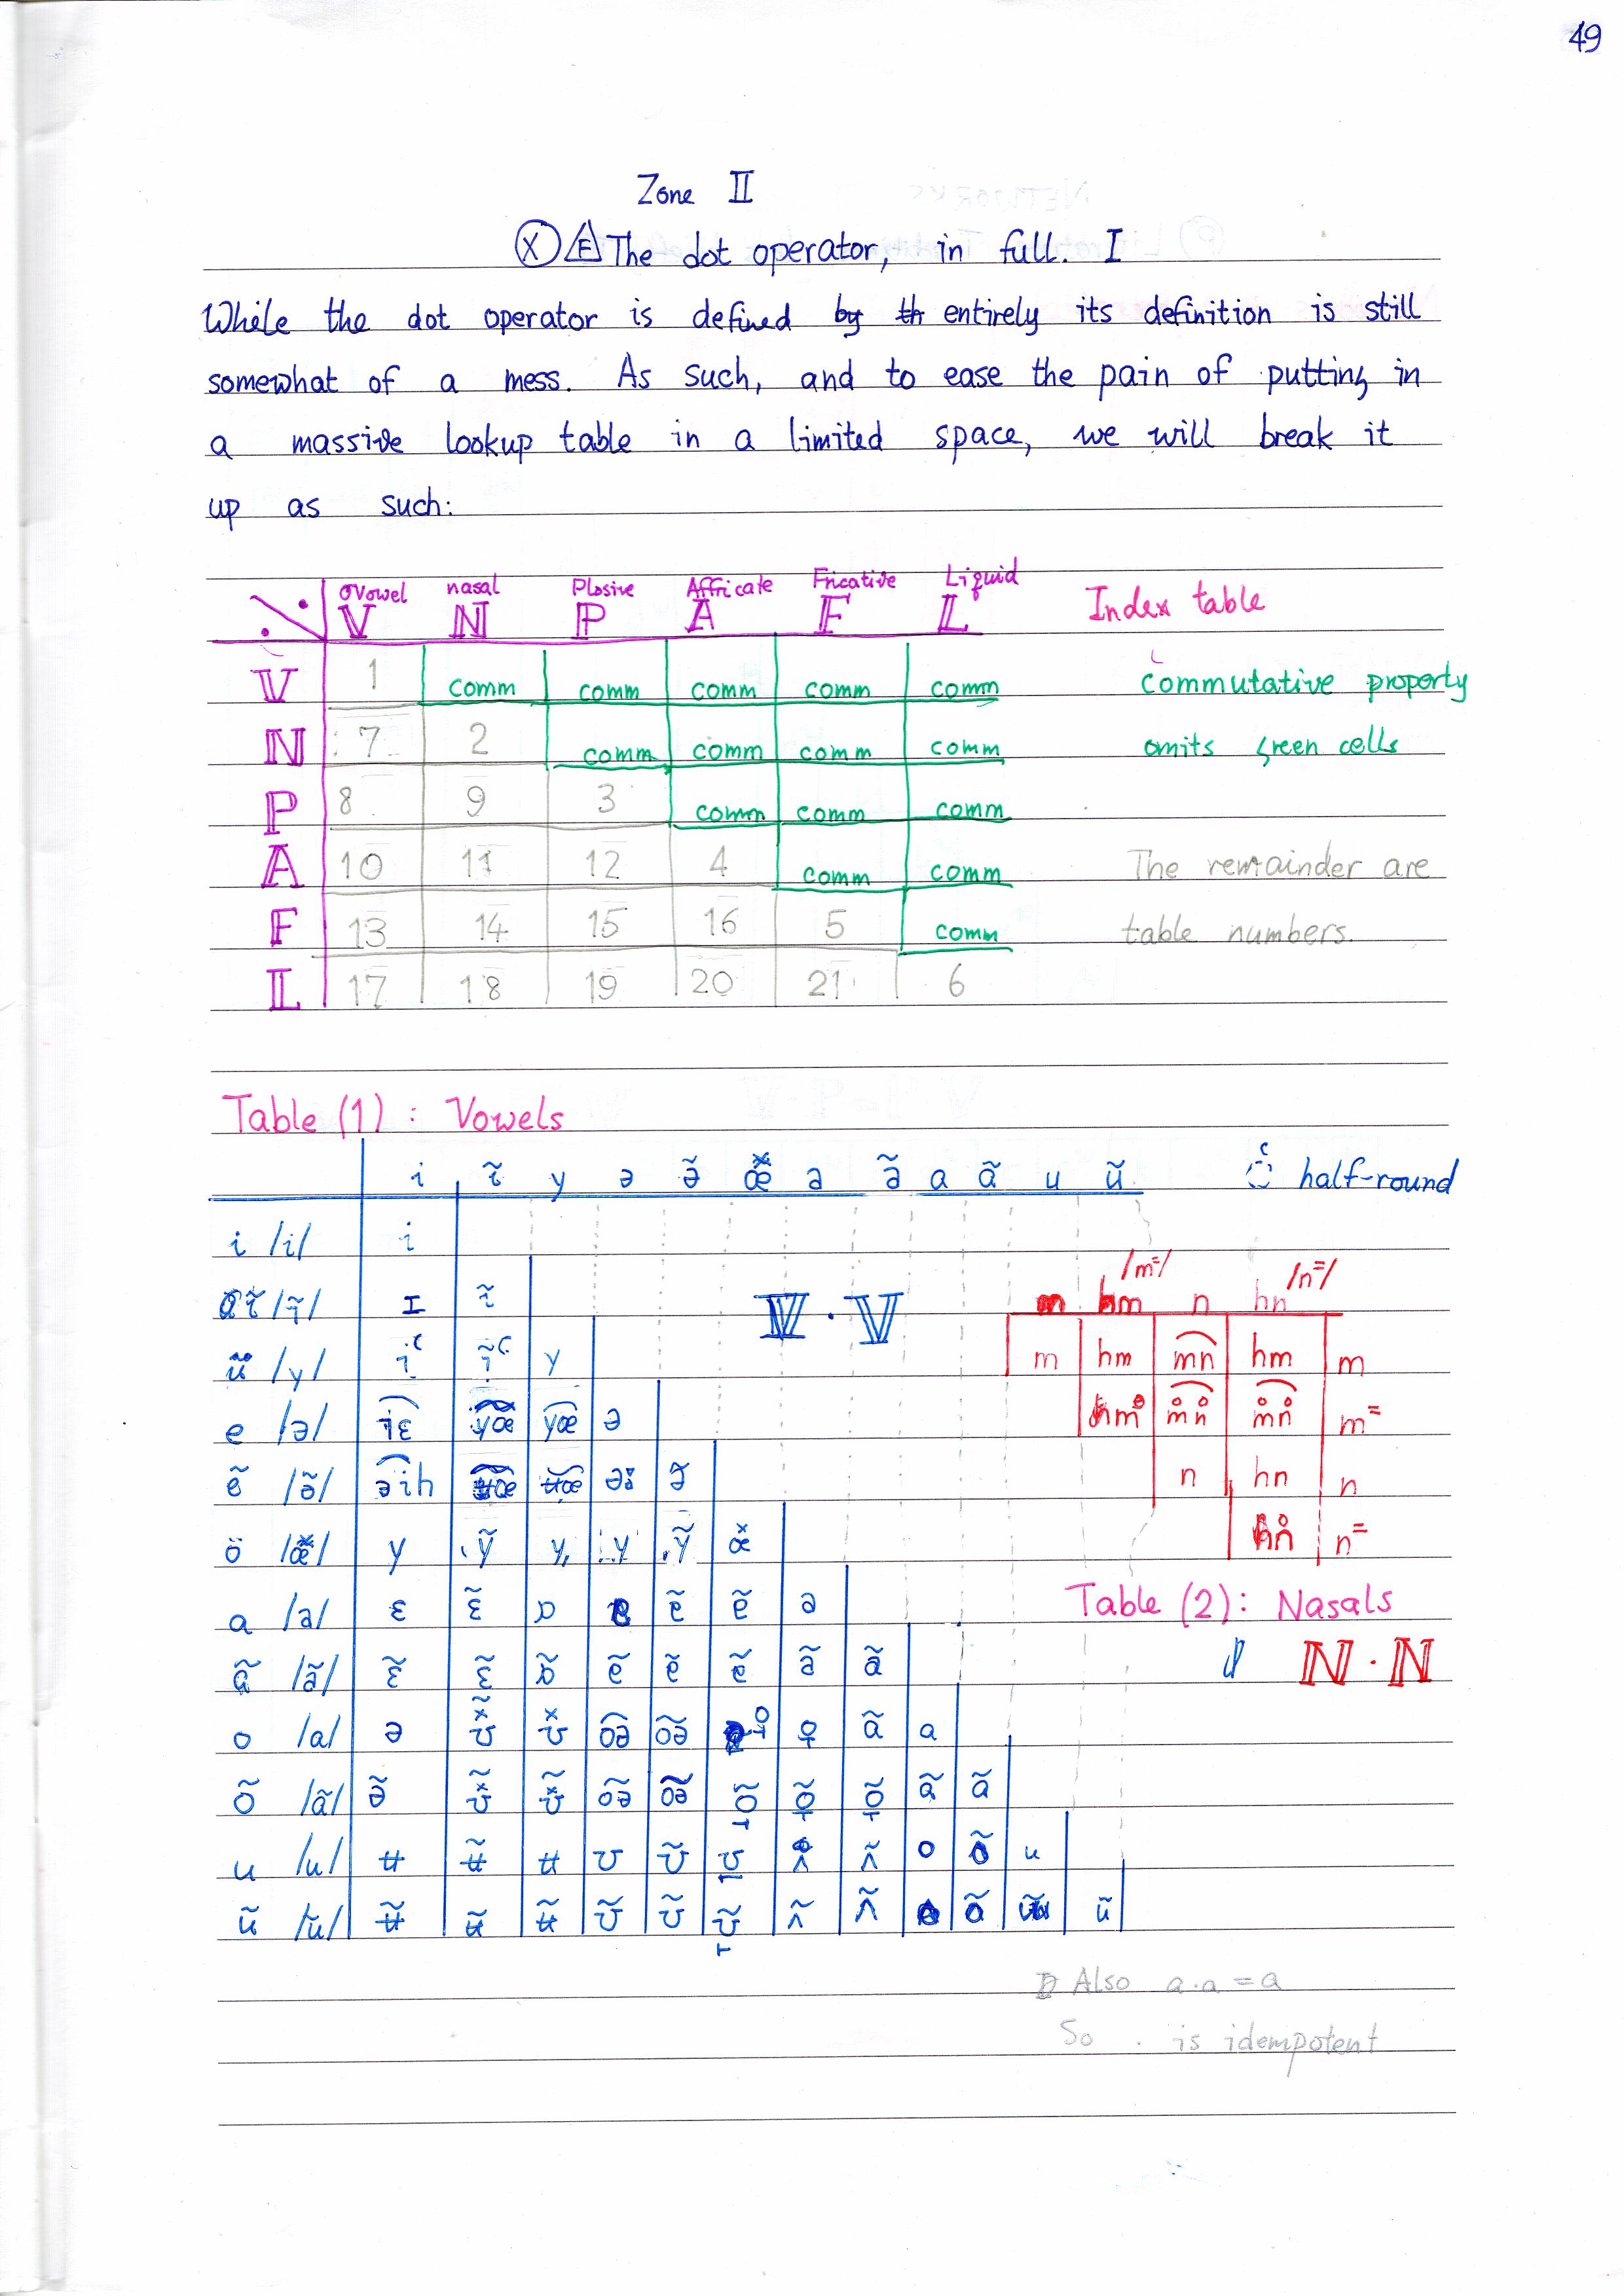 49
Zone II
X E The dot operator, in full. I
While the dot operator is defined by th entirely its definition is still
somewhat of a mess. As such, and to ease the pain of putting in
a massive lookup table in a limited space, we will break it
up as such:
Vowel nasal Plosive Affricate Fricative Liquid
V N P A F L Index table
V 1 comm comm comm comm comm commutative property
N 7 2 comm comm comm comm omits green cells
P 8 9 3 comm comm comm
A 10 11 12 4 comm comm The remainder are
F 13 14 15 16 5 comm table numbers.
L 17 18 19 20 21 6
Table (1) : Vowels
i ĩ y ə ə̃ æ̽ a ã ɑ ɑ̃ u ũ half-round
i /i/ i
ĩ /ĩ/ ɪ ĩ
ü /y/ i͑ ĩ͑ y
e /ə/ i͡ɛ y͡œ ə
ẽ /ə̃/ ə͡ih
ö y ỹ y, y ỹ
a ɛ ɛ̃
ã ɛ̃ ɛ̃
o /ɑ/ ə ɑ̃ ɑ
õ /ɑ̃/ ə̃ ɑ̃ ɑ̃
u /u/ ʉ ʉ̃ ʉ ʊ ʊ̃ o u
ũ /ũ/ ʉ̃ ʉ̃ ʉ̃ ʊ̃ ʊ̃ ũ
V · V
/m⁼/ /n⁼/
m hm n hn
m hm m͡n hm m
hm̊ m̊͡n̊ m̊͡n̊ m⁼
n hn n
n⁼
Table (2): Nasals
N · N
Also a·a = a
So · is idempotent